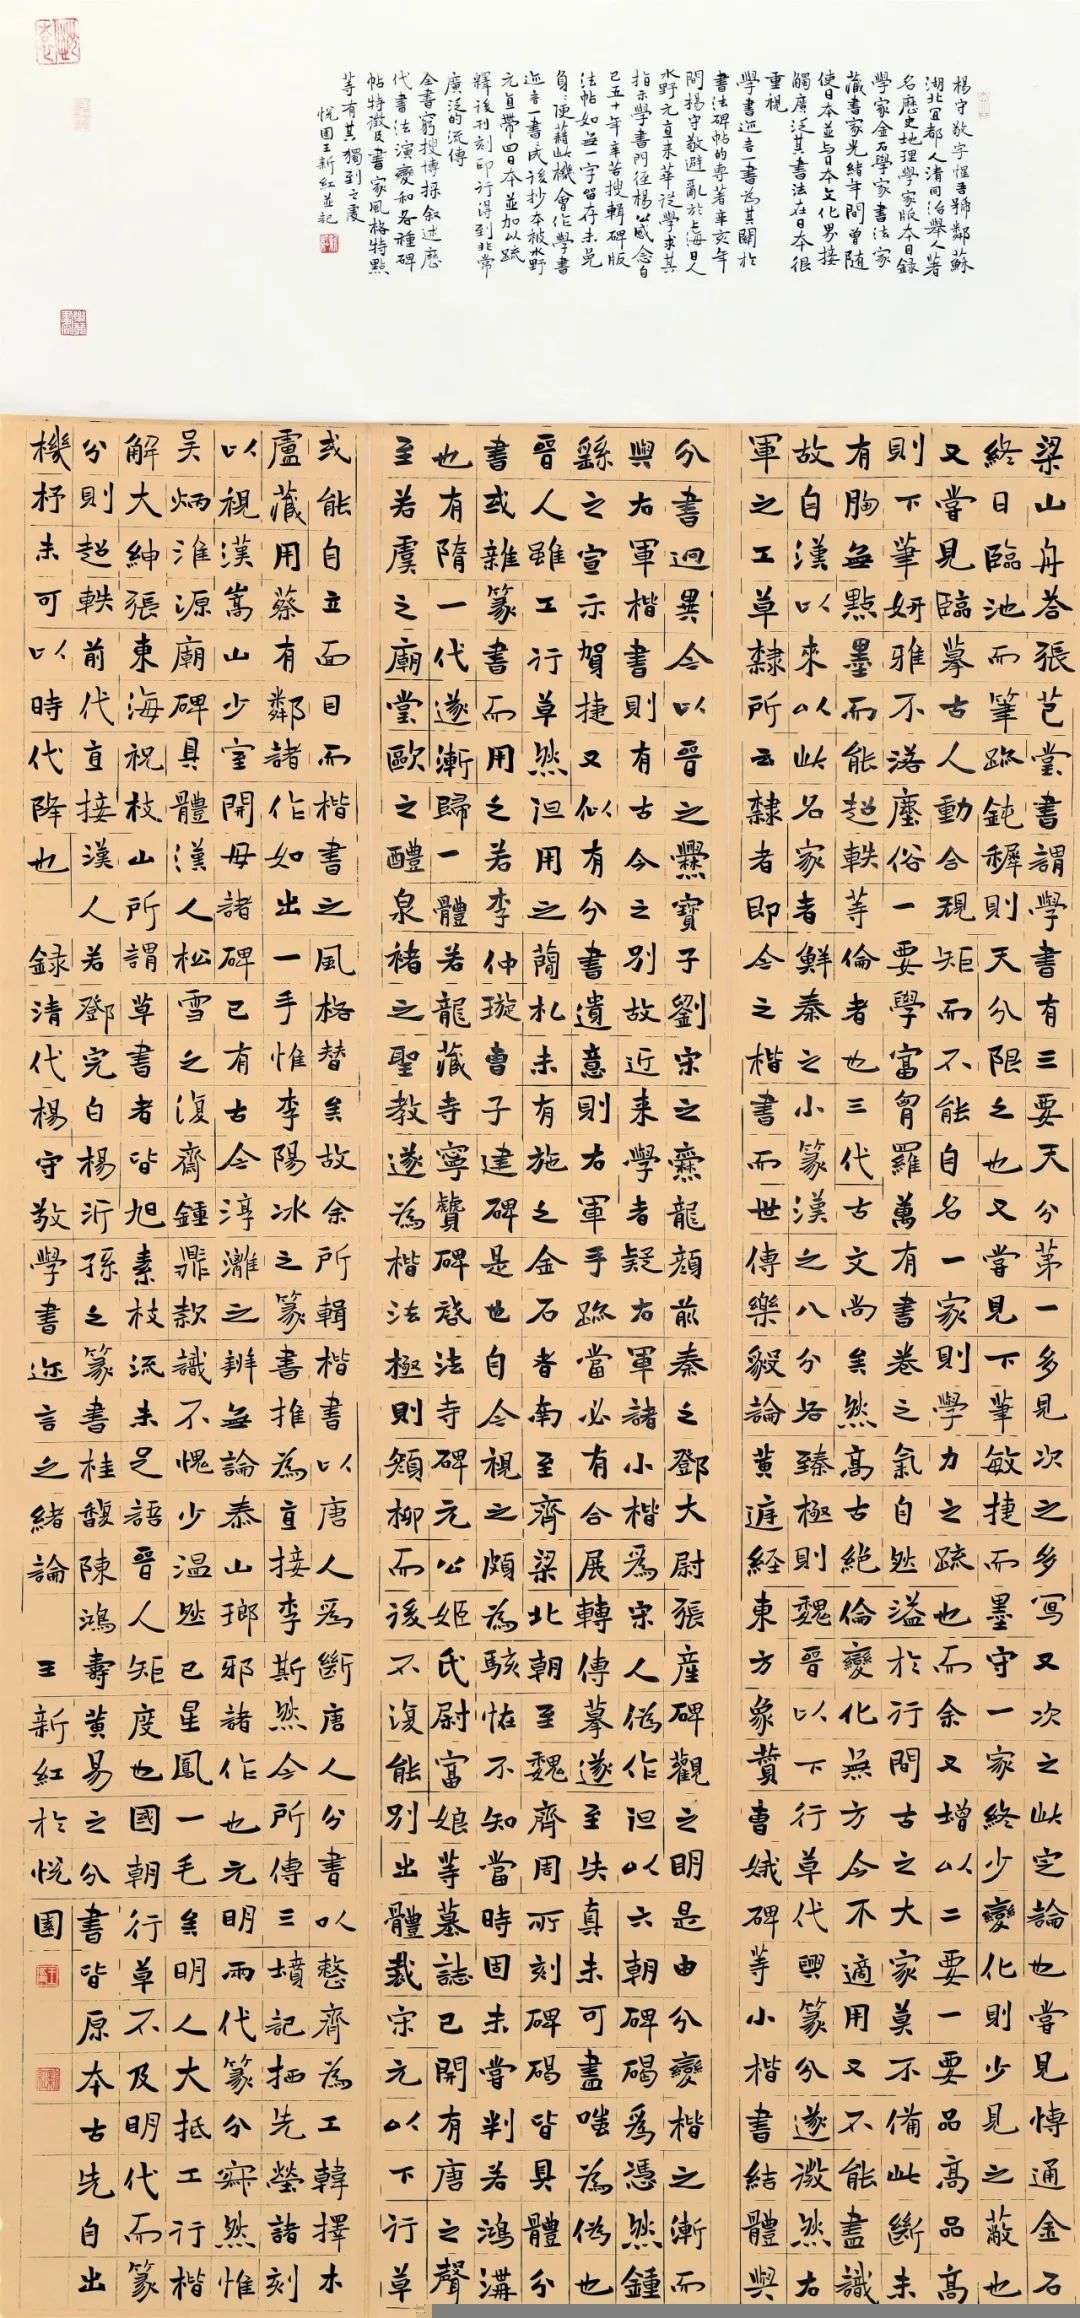 楊守敬字惺吾號鄰蘇
湖北宜都人清同治舉人著
名歷史地理學家版本目録
學家金石學家書法家
藏書家光緒年間曾随
使日本並与日本文化界接
觸廣泛其書法在日本很
重視
學書迩言一書為其關於
書法碑帖的專著辛亥年
間楊守敬避亂於上海日人
水野元直来華從學求其
指示學書門徑楊公感念自
己五十年辛苦搜輯碑版
法帖如無一字留存未免
負便藉此機會作學書
迩言一書成後抄本被水野
元直帶回日本並加以疏
釋後刊刻印行得到非常
廣泛的流傳
全書窮搜博採叙述歷
代書法演變和各種碑
帖特徵及書家風格特點
等有其獨到之處
悦園王新紅並記
梁山舟荅張芑堂書謂學書有三要天分第一多見次之多寫又次之此定論也嘗見博通金石
終日臨池而筆跡鈍穉則天分限之也又嘗見下筆敏捷而墨守一家終少變化則少見之蔽也
又嘗見臨摹古人動合規矩而不能自名一家則學力之疏也而余又增以二要一要品高品高
則下筆妍雅不落塵俗一要學富胷羅萬有書卷之氣自然溢於行間古之大家莫不備此斷未
有胸無點墨而能超軼等倫者也三代古文尚矣然高古絶倫變化無方今不適用又不能盡識
故自漢以來以此名家者鮮秦之小篆漢之八分各臻極則魏晉以下行草代興篆分遂微然右
軍之工草隸所云隸者即今之楷書而世傳樂毅論黄庭経東方象賛曹娥碑等小楷書結體與
分書迥異今以晉之爨寶子劉宋之爨龍顔前秦之鄧大尉張産碑觀之明是由分變楷之漸而
與右軍楷書則有古今之別故近来學者疑右軍諸小楷爲宋人僞作但以六朝碑碣爲憑然鍾
繇之宣示賀捷又似有分書遺意則右軍手跡當必有合展轉傳摹遂至失真未可盡嗤為僞也
晉人雖工行草然但用之蕳札未有施之金石者南至齊梁北朝至魏齊周所刻碑碣皆具體分
書或雜篆書而用之若李仲璇曹子建碑是也自今視之頗為駭怪不知當時固未嘗判若鴻溝
也有隋一代遂漸歸一體若龍藏寺寧贊碑啓法寺碑元公姬氏尉富娘等墓誌已開有唐之聲
至若虞之廟堂歐之醴泉褚之聖教遂為楷法極則顔柳而後不復能別出體裁宋元以下行草
或能自立面目而楷書之風格替矣故余所輯楷書以唐人爲斷唐人分書以整齊為工韓擇木
盧藏用蔡有鄰諸作如出一手惟李陽冰之篆書推為直接李斯然今所傳三墳記栖先塋諸刻
以視漢嵩山少室開母諸碑已有古今淳漓之辨無論泰山瑯邪諸作也元明兩代篆分寂然惟
吴炳淮源廟碑具體漢人松雪之復齋鍾鼎款識不愧少温然已星鳳一毛矣明人大抵工行楷
解大紳張東海祝枝山所謂草書者皆旭素枝流未足語晉人矩度也國朝行草不及明代而篆
分則超軼前代直接漢人若鄧完白楊沂孫之篆書桂馥陳鴻壽黄易之分書皆原本古先自出
機杼未可以時代降也 録清代楊守敬學書迩言之緒論 王新紅於悦園